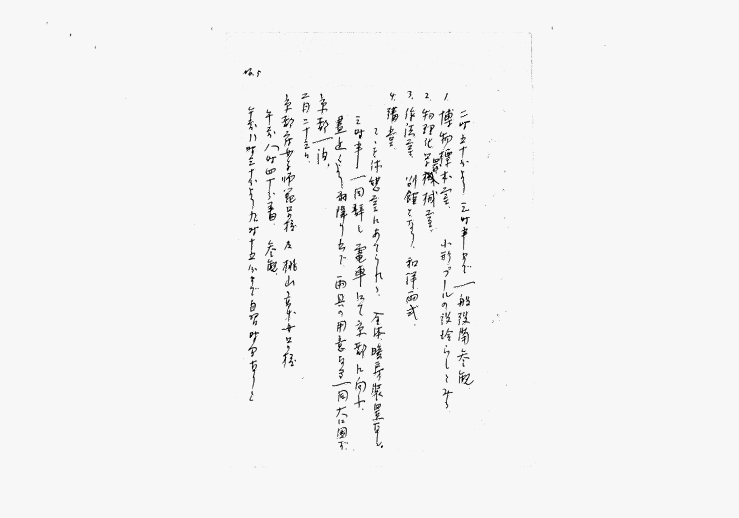 二時五十分より三時半まで一般設備参観
1. 博物標本室、小形プールの設
2. 物理化学器械室、
3. 作法室 別館となり、和洋両式
4. 講堂
こゝを休憩室にあてられる、全体暖房装置なし。
三時半一同辞し電車にて京都に向ふ、
昼近くより雨降り出で雨具の用意なき一同大に困る、
京都一泊、
二月二十三日、
京都府女子師範学校及桃山高等女学校
午前八時四十分着、参観、
午前八時三十分より九時十五分まで自習時間
No. 5